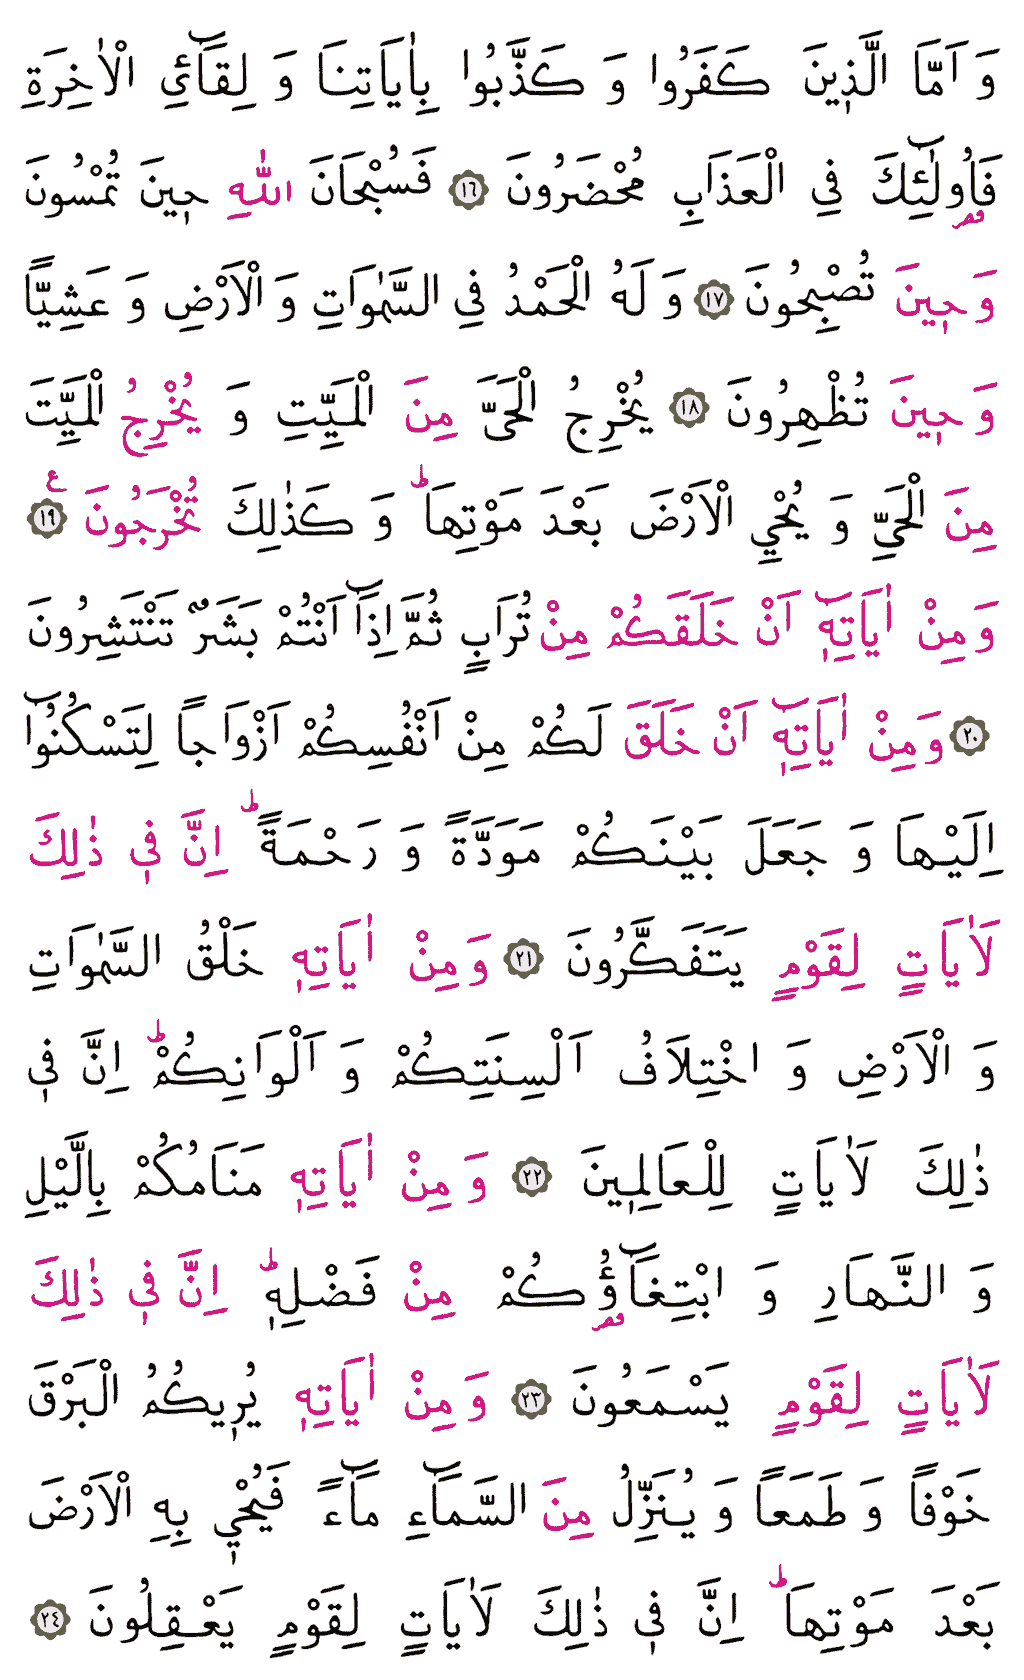 وَ اَمَّا الَّذ۪ينَ كَفَرُوا وَ كَذَّبُوا بِاٰيَاتِنَا وَ لِقَٓائِ الْاٰخِرَةِ
فَاُو۬لٰٓئِكَ فِي الْعَذَابِ مُحْضَرُونَ ﴿١٦﴾ فَسُبْحَانَ اللّٰهِ ح۪ينَ تُمْسُونَ
وَ ح۪ينَ تُصْبِحُونَ ﴿١٧﴾ وَ لَهُ الْحَمْدُ فِي السَّمٰوَاتِ وَ الْاَرْضِ وَ عَشِيًّا
وَ ح۪ينَ تُظْهِرُونَ ﴿١٨﴾ يُخْرِجُ الْحَيَّ مِنَ الْمَيِّتِ وَ يُخْرِجُ الْمَيِّتَ
مِنَ الْحَيِّ وَ يُحْيِي الْاَرْضَ بَعْدَ مَوْتِهَاۜ وَ كَذٰلِكَ تُخْرَجُونَ ﴿١٩﴾ ع
وَ مِنْ اٰيَاتِه۪ٓ اَنْ خَلَقَكُمْ مِنْ تُرَابٍ ثُمَّ اِذَٓا اَنْتُمْ بَشَرٌ تَنْتَشِرُونَ
﴿٢٠﴾ وَ مِنْ اٰيَاتِه۪ٓ اَنْ خَلَقَ لَكُمْ مِنْ اَنْفُسِكُمْ اَزْوَاجاً لِتَسْكُنُٓوا
اِلَيْهَا وَ جَعَلَ بَيْنَكُمْ مَوَدَّةً وَ رَحْمَةًۜ اِنَّ ف۪ي ذٰلِكَ
لَاٰيَاتٍ لِقَوْمٍ يَتَفَكَّرُونَ ﴿٢١﴾ وَ مِنْ اٰيَاتِه۪ خَلْقُ السَّمٰوَاتِ
وَ الْاَرْضِ وَ اخْتِلَافُ اَلْسِنَتِكُمْ وَ اَلْوَانِكُمْۜ اِنَّ ف۪ي
ذٰلِكَ لَاٰيَاتٍ لِلْعَالِم۪ينَ ﴿٢٢﴾ وَ مِنْ اٰيَاتِه۪ مَنَامُكُمْ بِالَّيْلِ
وَ النَّهَارِ وَ ابْتِغَٓاؤُ۬كُمْ مِنْ فَضْلِه۪ۜ اِنَّ ف۪ي ذٰلِكَ
لَاٰيَاتٍ لِقَوْمٍ يَسْمَعُونَ ﴿٢٣﴾ وَ مِنْ اٰيَاتِه۪ يُر۪يكُمُ الْبَرْقَ
خَوْفاً وَ طَمَعاً وَ يُنَزِّلُ مِنَ السَّمَٓاءِ مَٓاءً فَيُحْي۪ بِهِ الْاَرْضَ
بَعْدَ مَوْتِهَاۜ اِنَّ ف۪ي ذٰلِكَ لَاٰيَاتٍ لِقَوْمٍ يَعْقِلُونَ ﴿٢٤﴾